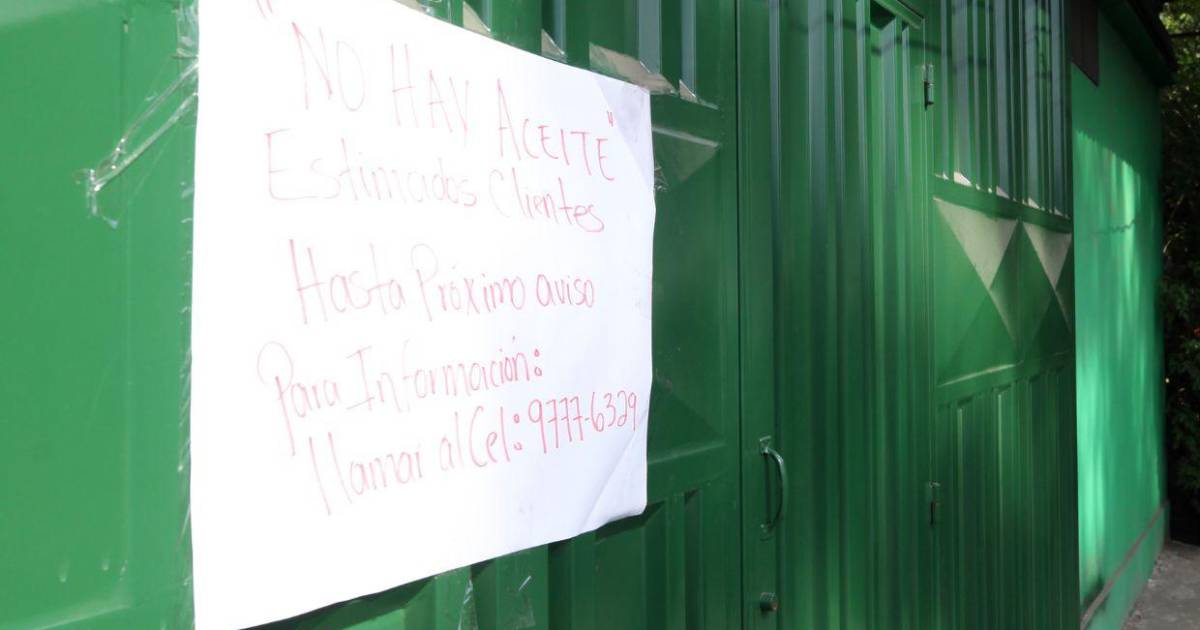 "NO HAY ACEITE"
Estimados Clientes
Hasta Próximo aviso
Para Información:
llamar al Cel: 9777-6329